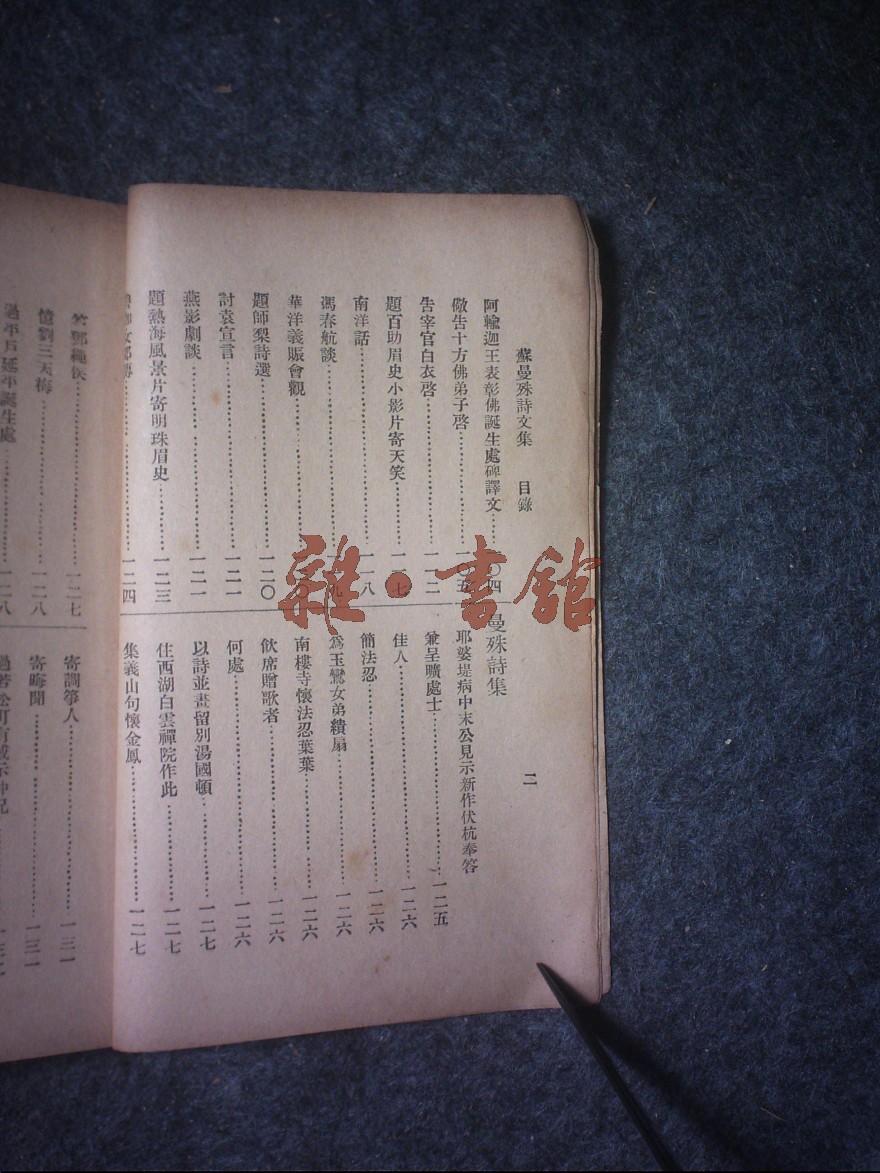 蘇曼殊詩文集 目錄 二
阿輸迦王表彰佛誕生處碑譯文……〇四
敬告十方佛弟子啓……五
告宰官白衣啓……一一二
題百助眉史小影片寄天笑……一一七
南洋話……一一八
馮春航談……一一九
華洋義賑會觀
題師梨詩選……一二〇
討袁宣言……一二一
燕影劇談……一二一
題熱海風景片寄明珠眉史……一二三
……一二四
曼殊詩集
耶婆堤病中末公見示新作伏枕奉答
兼呈曠處士……一二五
佳人……一二六
簡法忍……一二六
爲玉鸞女弟繢扇……一二六
南樓寺懷法忍葉葉……一二六
飲席贈歌者……一二六
何處……一二六
以詩並畫留別湯國頓……一二七
住西湖白雲禪院作此……一二七
集義山句懷金鳳……一二七
答鄧繩侯……一二七
憶劉三天梅……一二八
過平戶延平誕生處……一二八
寄調箏人……一三一
寄晦聞……一三一
過若松町有感示仲兄
雜·書館